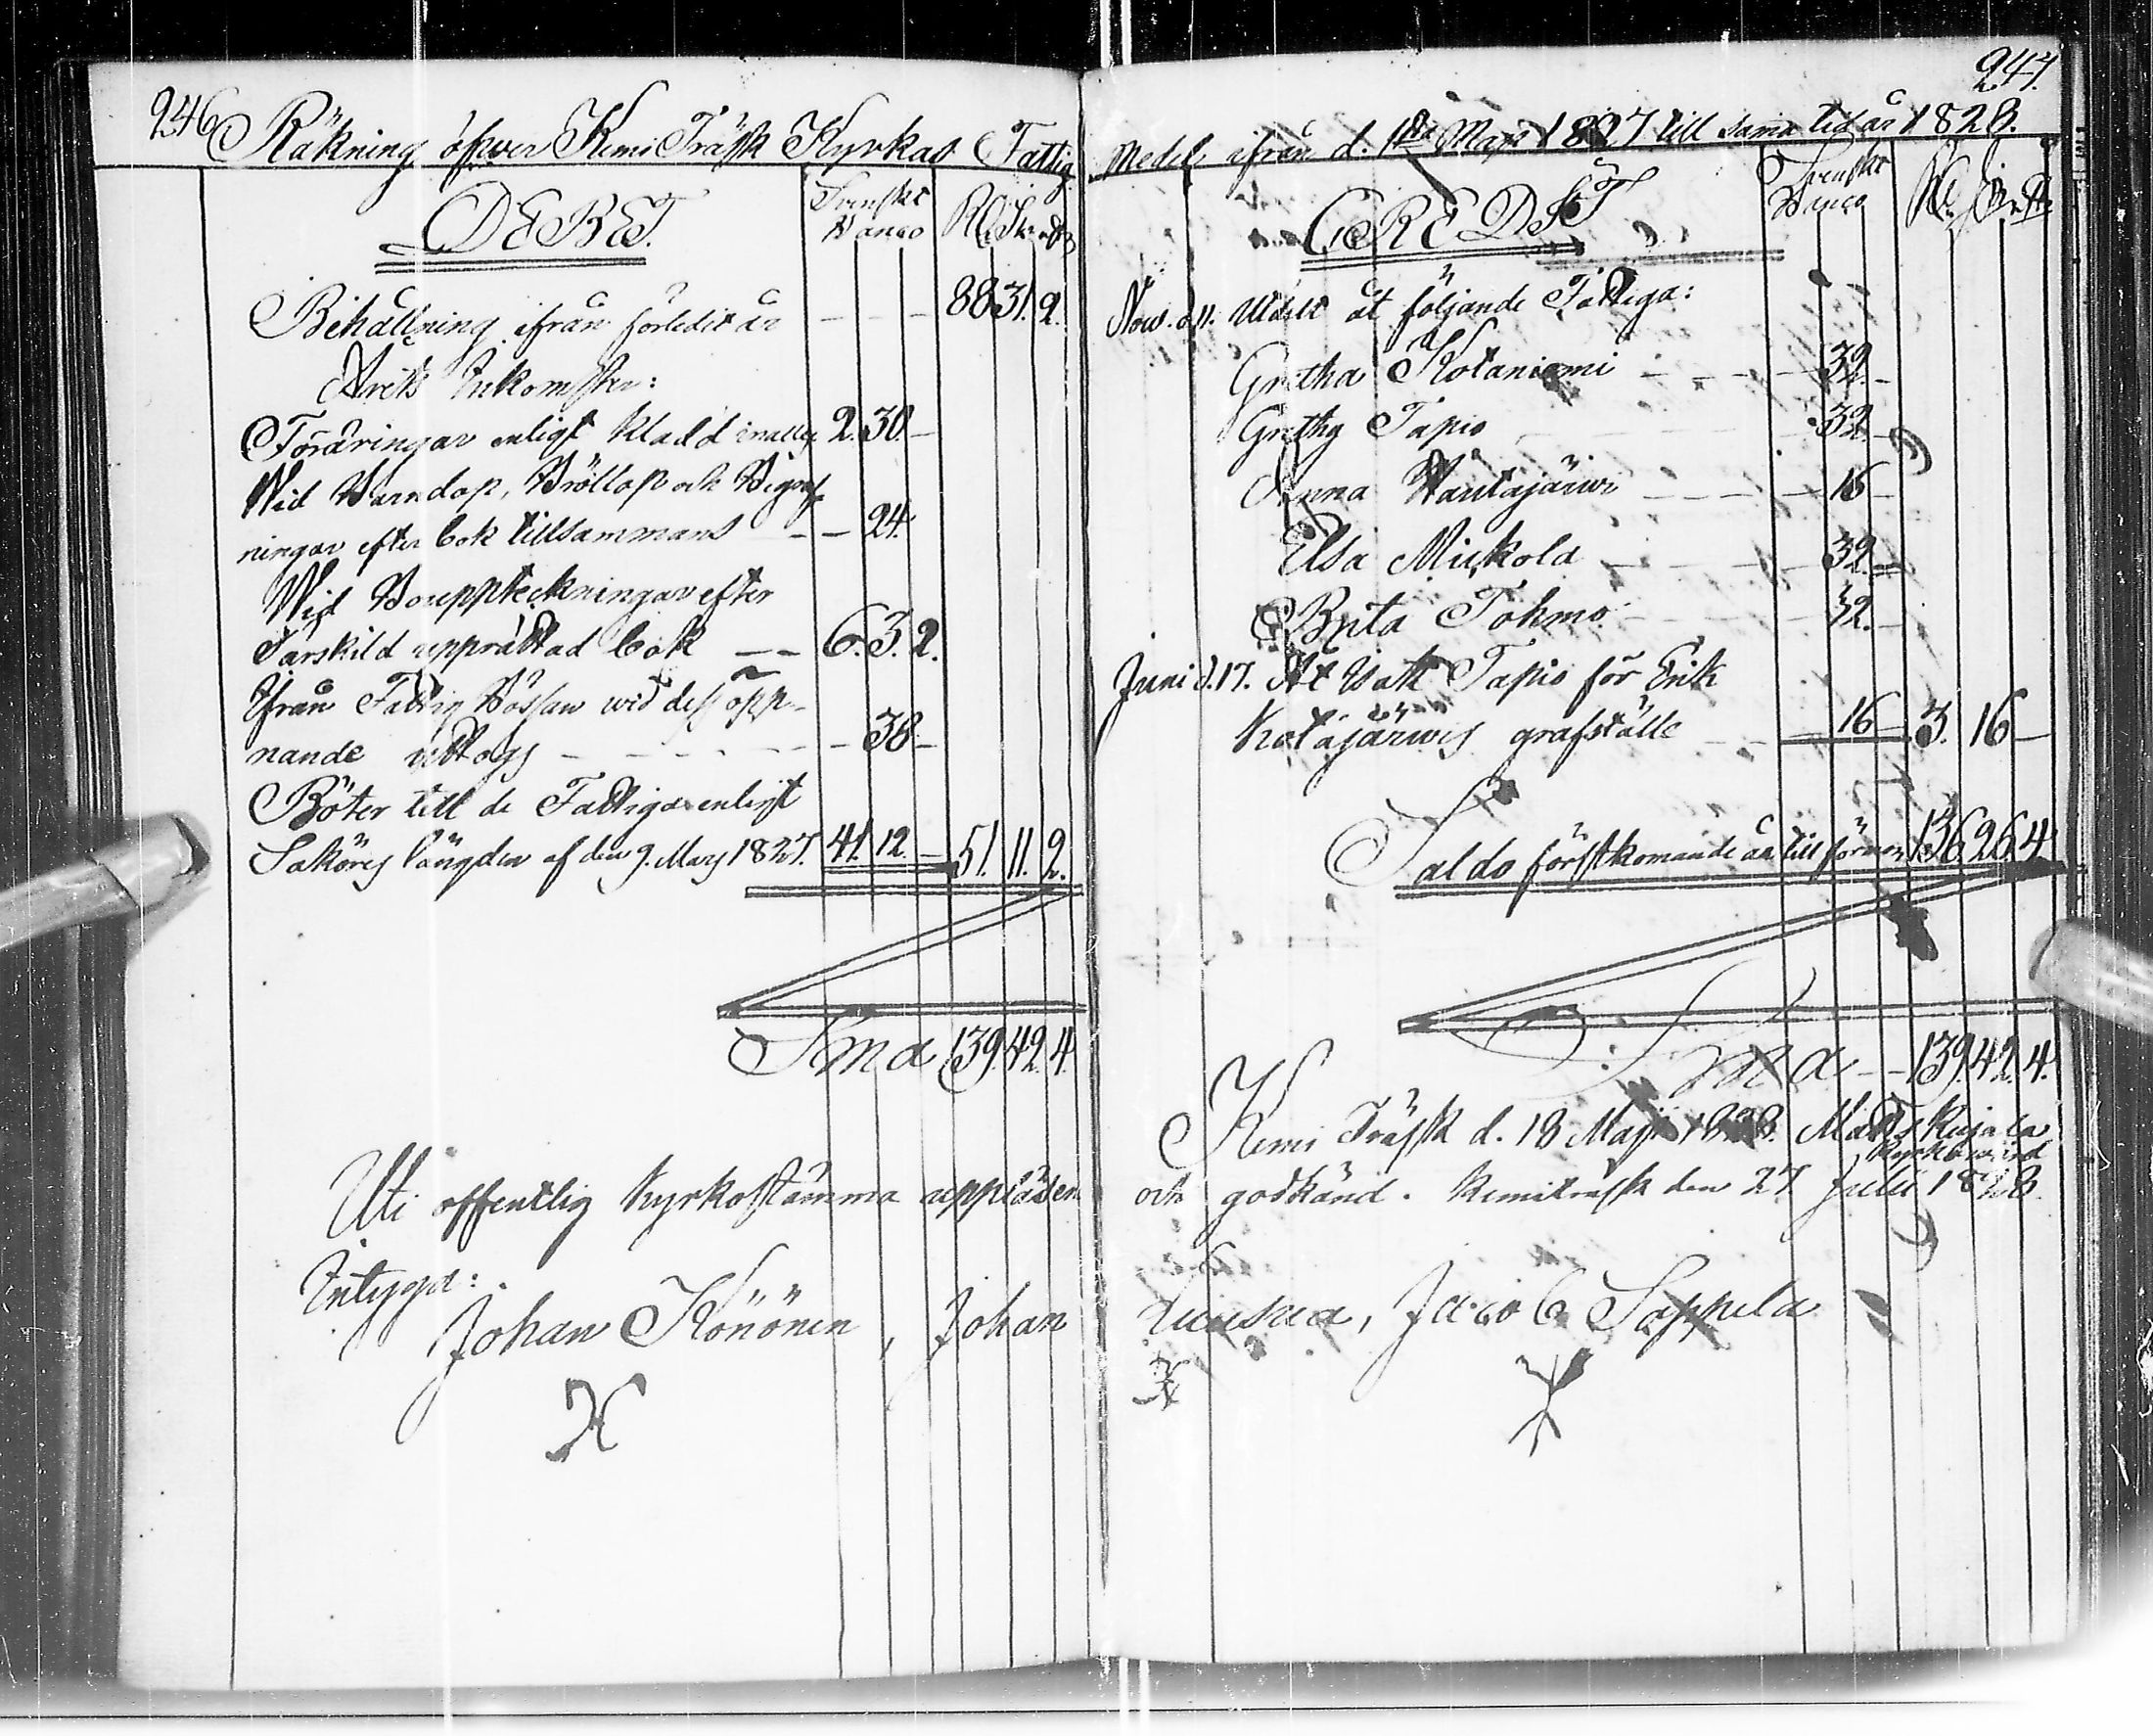 246
Räkning öfver Kemi Träsk Kyrkas Fattig
DEBET.
Svenskt Banco
Behållning ifrån förledit år — — — 88 31. 2.
Årets Inkomster:
Föräringar enligt kladd inalles 2. 30. —
Wid Barndop, Bröllop och Begraf
ningar efter bok tillsammans — — 24.
Wid Bouppteckningar efter
särskild upprättad bok — — 6. 3. 2.
Ifrån Fattig Bössan wid dess öpp-
nande uttogs — — — — — 38 —
Böter till de Fattiga enligt
Saköres längden af den 9. Mars 1827. 41. 12 — 51. 11. 2.
Sma 139. 42. 4.
Uti offentlig Kyrkostämma uppläsen
Intyga:
Johan Könönen, Johan
247.
Medel ifrån d. 1sta Maji 1827 till sama tid år 1828.
CREDIT
Svenskt Banco
Now. d. 11. Utdelt åt följande Fattiga:
Gretha Kotaniemi — — — 32. —
Grethg Tapio — — — 32. —
Anna Wäntajärwi — — — — 16 —
Elsa Mickola — — — 32. —
Brita Tohmo — — — 32. —
Juni d. 17. Af Isak Tapio för Erik
Kotajärwis grafställe — — 16 — 3. 16 —
Saldo förstkomande år till förmon 136. 26. 4
Sma — — 139. 42. 4.
Kemi Träsk d. 18 Maji 1828. Matts Kujala
Kyrkowärd
och godkänd. Kemiträsk den 27 Julii 1828.
Luusua, Jacob Sappula